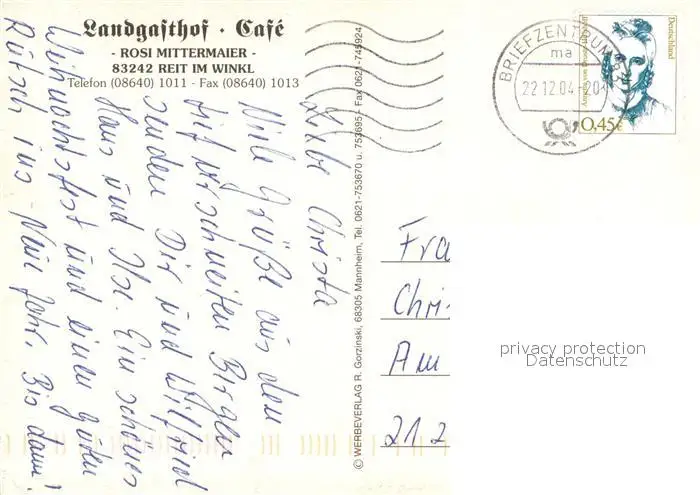 Landgasthof · Café
- ROSI MITTERMAIER -
83242 REIT IM WINKL
Telefon (08640) 1011 - Fax (08640) 1013
Liebe Christa
Viele Grüße aus dem
tief verschneiten Bergen
senden Dir und Wilfried
Hans und Ilse. Ein schönes
Weihnachtsfest und einen guten
Rutsch ins Neue Jahr. Bis dann!
© WERBEVERLAG R. Gorzinski, 68305 Mannheim, Tel. 0621-753670 u. 753695 - Fax 0621-745924
BRIEFZENTRUM
ma
22.12.04-20
Deutschland
0,45€
Fra
Chri
Am
212
privacy protection
Datenschutz